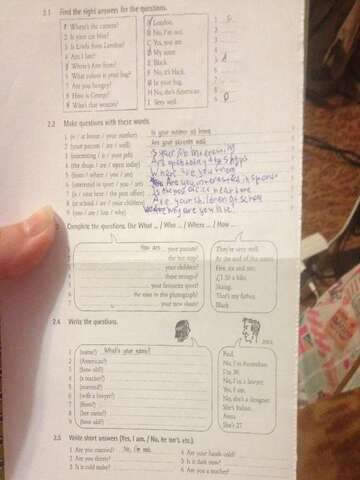 2.1 Find the right answers for the questions.
1 Where's the camera?
2 Is your car blue?
3 Is Linda from London?
4 Am I late?
5 Where's Ann from?
6 What colour is your bag?
7 Are you hungry?
8 How is George?
9 Who's that woman?
A London.
B No, I'm not.
C Yes, you are.
D My sister.
E Black.
F No, it's black.
G In your bag.
H No, she's American.
I Very well.
1 G
2
3
4
5 A
6
9 D
2.2 Make questions with these words.
1 (is / at home / your mother) Is your mother at home
2 (your parents / are / well) Are your parents well
3 (interesting / is / your job) Is your job interesting
4 (the shops / are / open today) Are open today the shops
5 (from / where / you / are) Where are you from
6 (interested in sport / you / are) Are you interested in sport
7 (is / near here / the post office) Is the post office near here
8 (at school / are / your children) Are your children at school
9 (you / are / late / why) Why are you late?
Complete the questions. Use What ... / Who ... / Where ... / How ...
1 How are your parents?
2 the bus stop?
3 your children?
4 these oranges?
5 your favourite sport?
6 the man in this photograph?
7 your new shoes?
They're very well.
At the end of the street.
Five, six and ten.
£1.50 a kilo.
Skiing.
That's my father.
Black.
2.4 Write the questions.
1 (name?) What's your name?
2 (American?)
3 (how old?)
4 (a teacher?)
5 (married?)
6 (wife a lawyer?)
7 (from?)
8 (her name?)
9 (how old?)
PAUL
Paul.
No, I'm Australian.
I'm 30.
No, I'm a lawyer.
Yes, I am.
No, she's a designer.
She's Italian.
Anna.
She's 27.
2.5 Write short answers (Yes, I am. / No, he isn't. etc.).
1 Are you married? No, I'm not.
2 Are you thirsty?
3 Is it cold today?
4 Are your hands cold?
5 Is it dark now?
6 Are you a teacher?